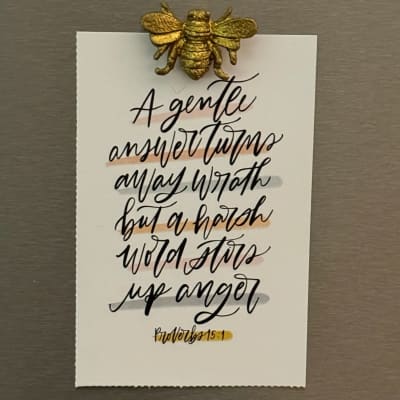 A gentle
answer turns
away wrath
but a harsh
word stirs
up anger
Proverbs 15:1